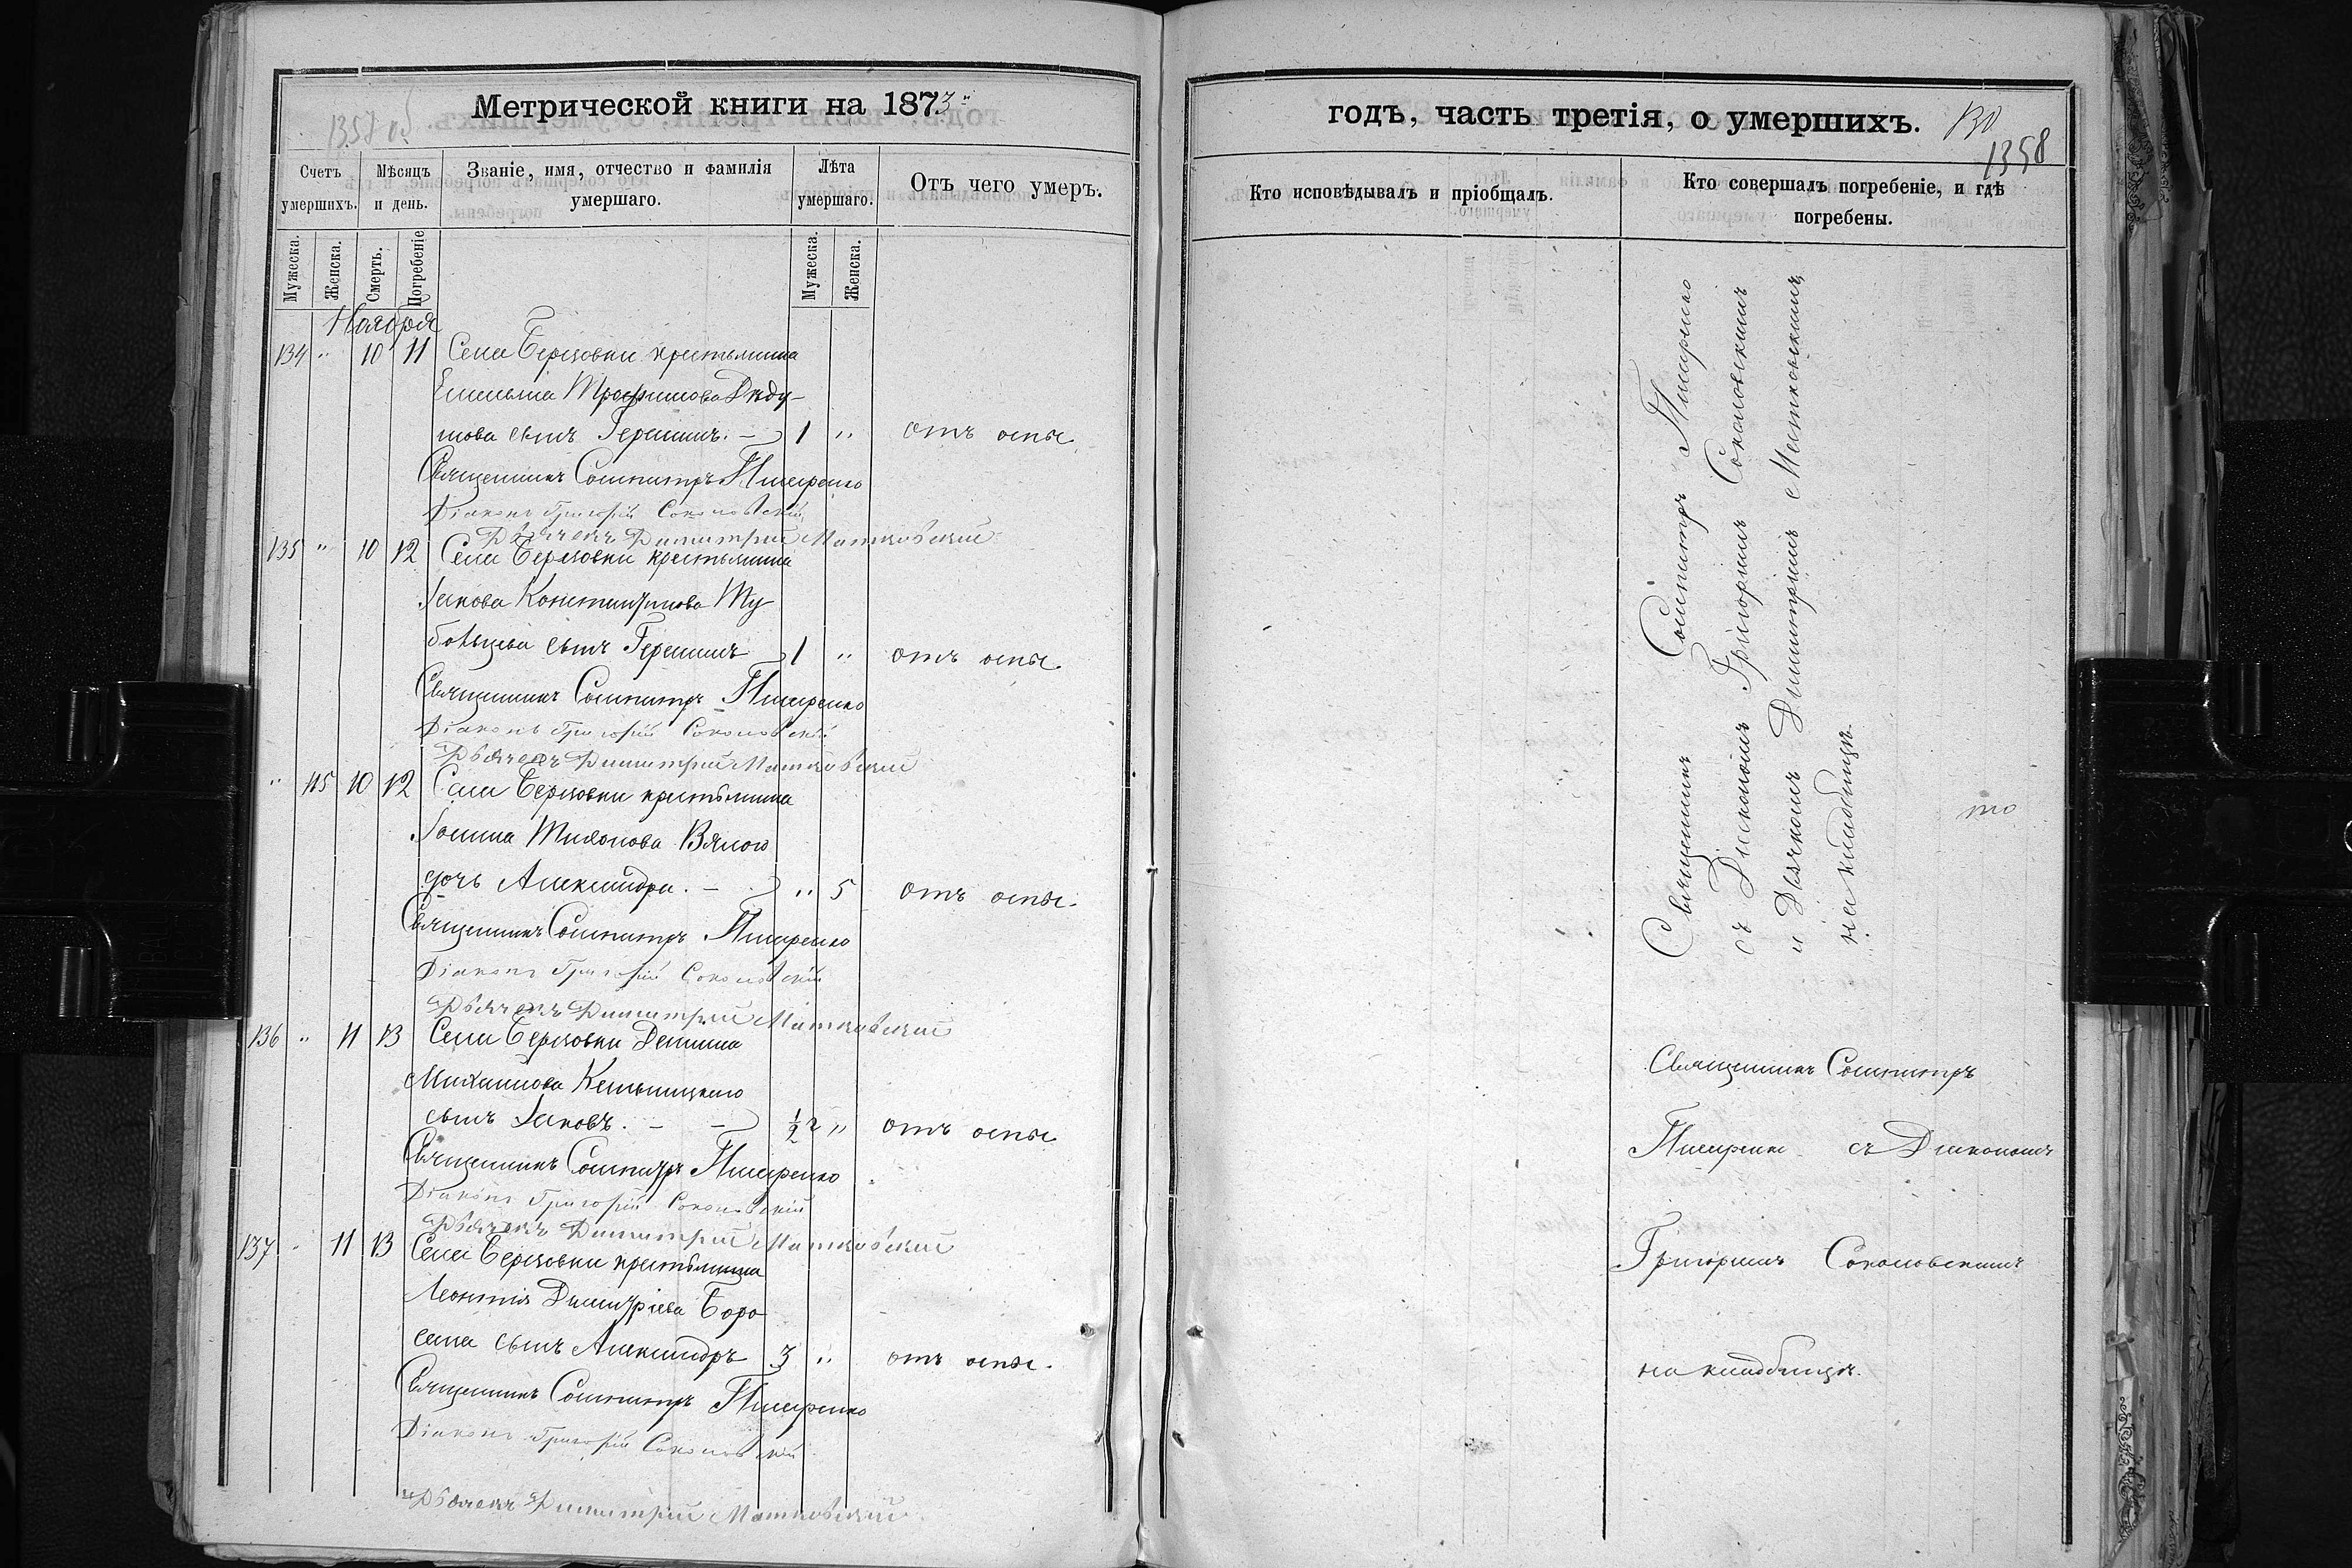 Метрической книги на 1873
1357 об
Счетъ умершихъ.
Мѣсяцъ и день.
Званіе, имя, отчество и фамилія умершаго.
Лѣта умершаго.
Отъ чего умеръ.
Мужеска.
Женска.
Смерть.
Погребеніе
Мужеска.
Женска.
Ноября
134 " 10 11 Села Березовки крестьянина
Емельяна Трофимова Дѣду-
шова сынъ Герасимъ. — 1 " отъ оспы.
Священникъ Сосипатръ Писаренко
Діаконъ Григорій Соколовскій
Дьячекъ Димитрий Матковский
135 " 10 12 Села Березовки крестьянина
Іакова Константинова
сынъ Герасимъ 1 " отъ оспы.
Священникъ Сосипатръ Писаренко
Діаконъ Григорій Соколовскій
Дьячекъ Димитрий Матковский
" 115 10 12 Села Березовки крестьянина
Іоанна Тихонова Вялого
дочь Александра. — " 5 отъ оспы.
Священникъ Сосипатръ Писаренко
Діаконъ Григорій Соколовскій
Дьячекъ Димитрий Матковский
136 " 11 13 Села Березовки
Михаилова
сынъ Іаковъ. — — ½ " отъ оспы
Священникъ Сосипатръ Писаренко
Діаконъ Григорій Соколовскій
Дьячекъ Димитрий Матковский
137 " 11 13 Села Березовки крестьянина
Леонтія Димитріева Боро
сана сынъ Александръ 3 " отъ оспы.
Священникъ Сосипатръ Писаренко
Діаконъ Григорій Соколовскій
Дьячекъ Димитрий Матковский
годъ, часть третія, о умершихъ.
130
1358
Кто исповѣдывалъ и пріобщалъ.
Кто совершалъ погребеніе, и гдѣ погребены.
Священникъ Сосипатръ Писаренко
съ Діакономъ Григоріемъ Соколовскимъ
и Дьячкомъ Димитріемъ Матковскимъ
на кладбищѣ.
Священникъ Сосипатръ
Писаренко съ Діакономъ
Григоріемъ Соколовскимъ
на кладбищѣ.